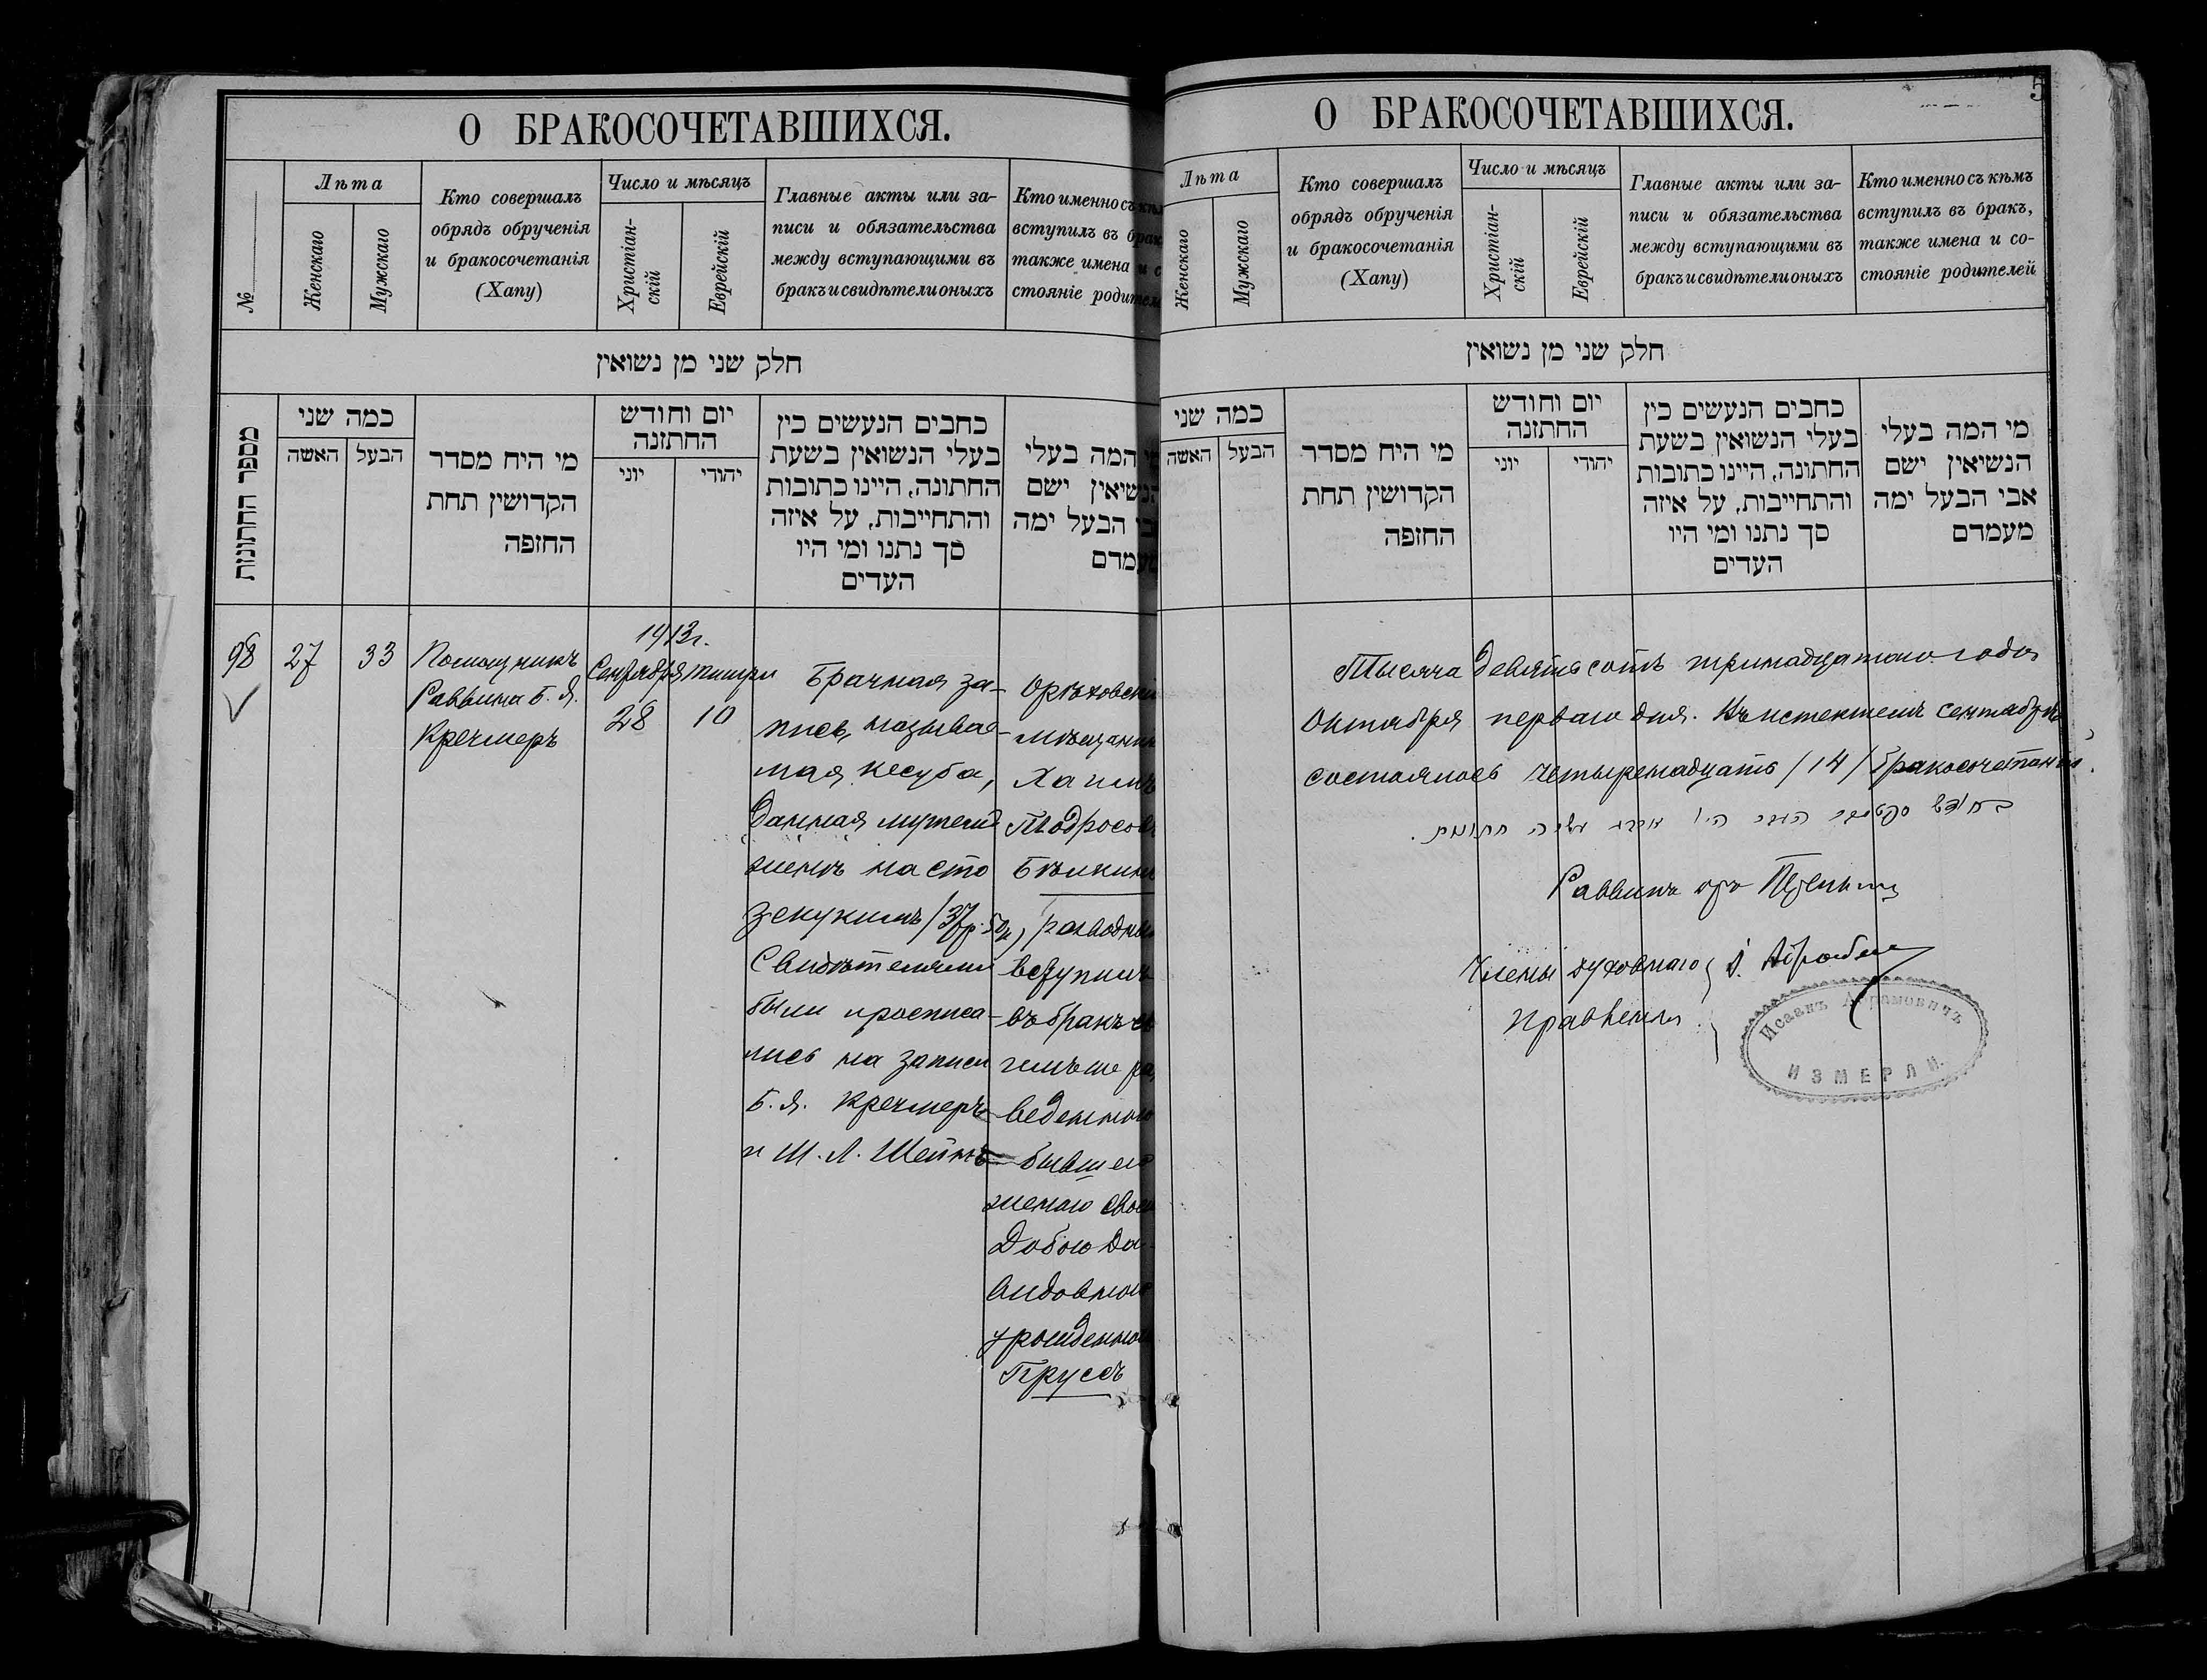 О БРАКОСОЧЕТАВШИХСЯ.
№
Лѣта
Женскаго
Мужскаго
Кто совершалъ
обрядъ обрученія
и бракосочетанія
(Хапу)
Число и мѣсяцъ
Христіан-
скій
Еврейскій
Главные акты или за-
писи и обязательства
между вступающими въ
бракъ и свидѣтели оныхъ
Кто именно съ
вступилъ въ
также имена и
стояніе
חלק שני מן נשואין
מספר החתונות
כמה שני
האשה
הבעל
מי היח מסדר
הקדושין תחת
החזפה
יום וחודש
החתזנה
יוני
יהודי
כחבים הנעשים כין
בעלי הנשואין בשעת
החתונה, היינו כתובות
והתחייבות, על איזה
סך נתנו ומי היו
העדים
המה בעלי
ישם
הבעל ימה
98
27
33
Помощникъ
Раввина Б. Я.
Кречмеръ
1913г.
Сентября
28
Тишри
10
Брачная за-
пись, называе-
мая кесуба,
данная мужемъ
женѣ на сто
зекукимъ /37р. 50к/
Свидѣтелями
были и росписа-
лись на записи
Б. Я. Кречмеръ
и Ш. Л. Шейнъ
Орѣховскій
мѣщанинъ
Хаимъ
Тодросовъ
Бѣлкинъ
разводный
вступилъ
въ бракъ съ
бывшею
женою своею
Добою Да-
видовною
урожденною
Прусъ
О БРАКОСОЧЕТАВШИХСЯ.
5
Лѣта
Женскаго
Мужскаго
Кто совершалъ
обрядъ обрученія
и бракосочетанія
(Хапу)
Число и мѣсяцъ
Христіан-
скій
Еврейскій
Главные акты или за-
писи и обязательства
между вступающими въ
бракъ и свидѣтели оныхъ
Кто именно съ кѣмъ
вступилъ въ бракъ,
также имена и со-
стояніе родителей
חלק שני מן נשואין
כמה שני
האשה
הבעל
מי היח מסדר
הקדושין תחת
החזפה
יום וחודש
החתזנה
יוני
יהודי
כחבים הנעשים כין
בעלי הנשואין בשעת
החתונה, היינו כתובות
והתחייבות, על איזה
סך נתנו ומי היו
העדים
מי המה בעלי
הנשיאין ישם
אבי הבעל ימה
מעמדם
Тысяча девятьсотъ тринадцатаго года
Октября перваго дня. Въ истекшемъ сентябрѣ
состоялось четырнадцать /14/ бракосочетаній.
Раввинъ
Члены духовнаго
правленія
Исаакъ Абрамовичъ
ИЗМЕРЛИ.